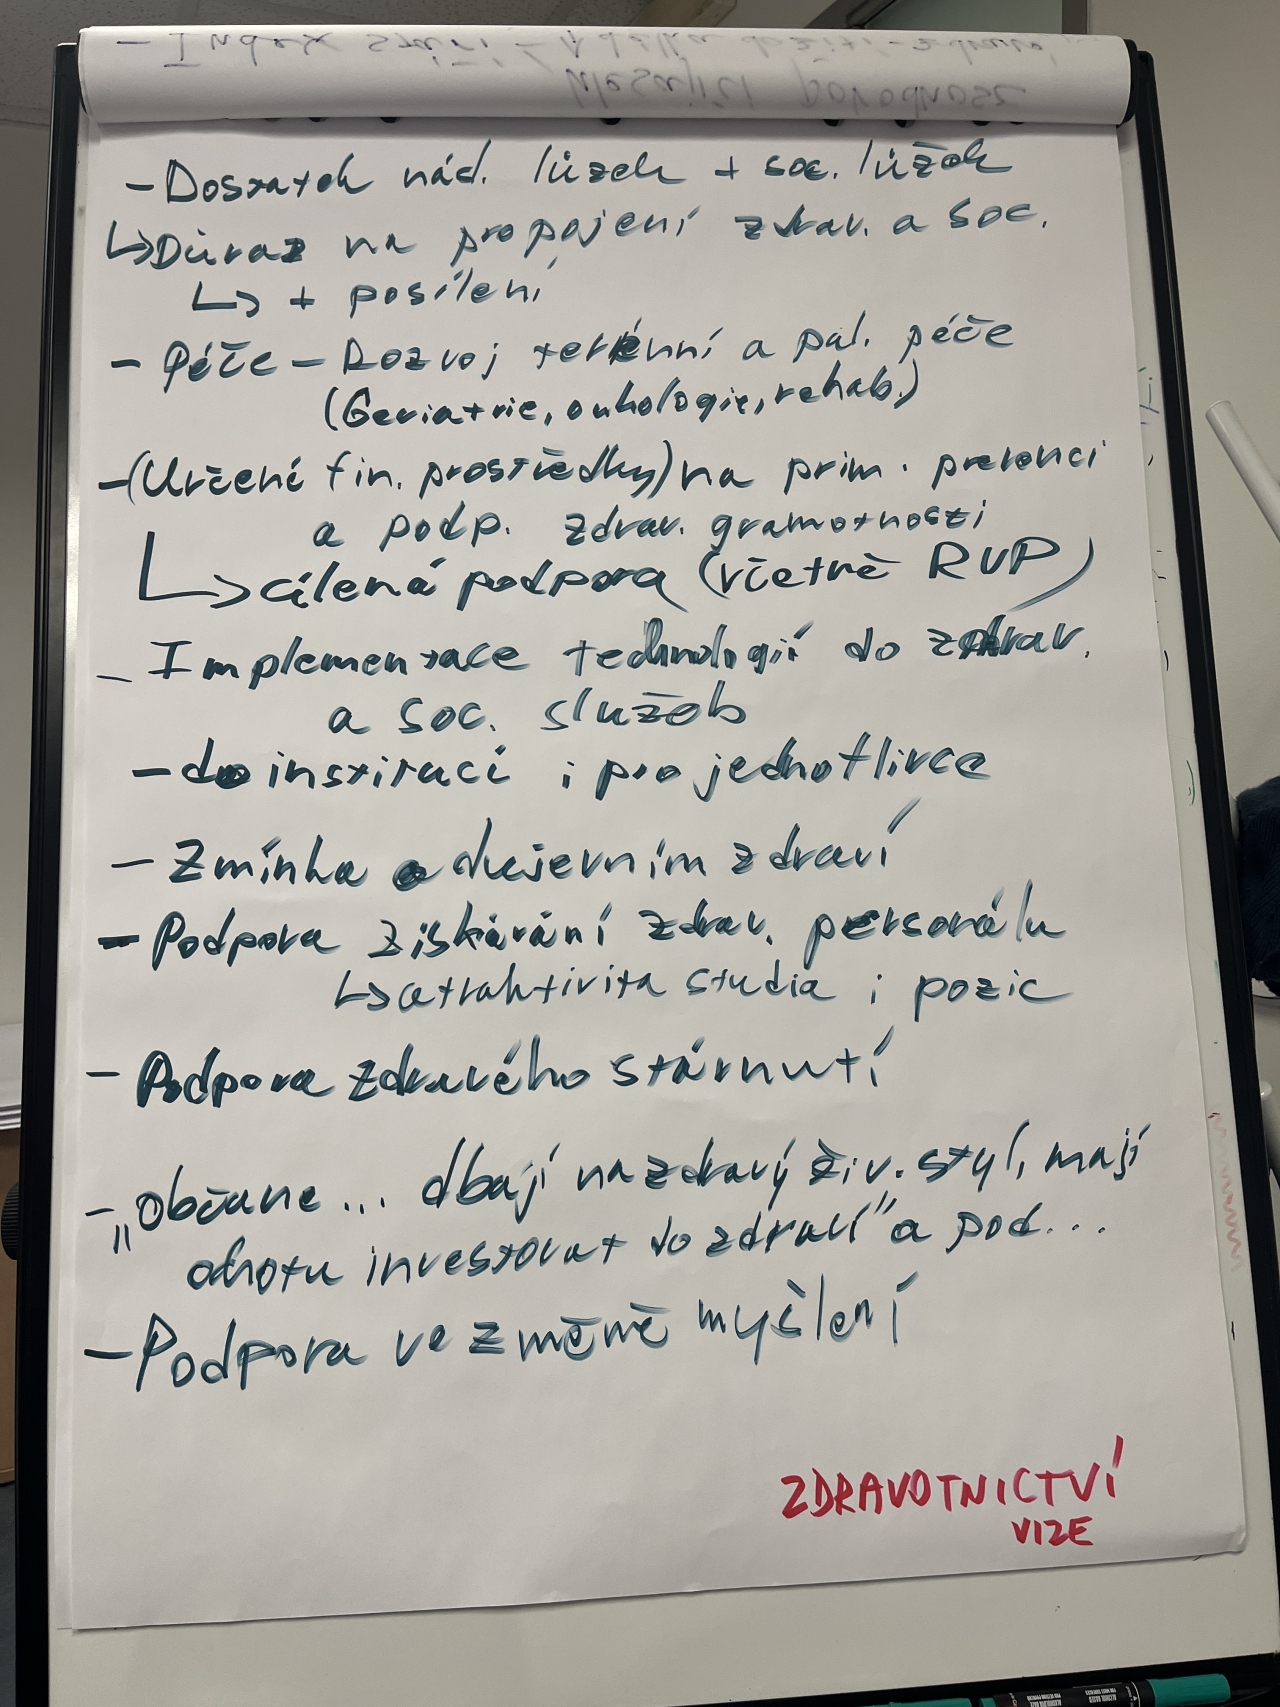 - Dostatek nád. lůžek + soc. lůžek
↳ Důraz na propojení zdrav. a soc.
↳ + posílení
- Péče - Rozvoj terénní a pal. péče
(Geriatrie, onkologie, rehab.)
- (Určení fin. prostředky) na prim. prevenci
a podp. zdrav. gramotnosti
↳ cílená podpora (včetně RVP)
- Implementace technologií do zdrav.
a soc. služeb
- do institucí i pro jednotlivce
- Zmínka o duševním zdraví
- Podpora získávání zdrav. personálu
↳ atraktivita studia i pozic
- Podpora zdravého stárnutí
- „Občané... dbají na zdravý živ. styl, mají
ochotu investovat do zdraví" a pod...
- Podpora ve změně myšlení
ZDRAVOTNICTVÍ
VIZE